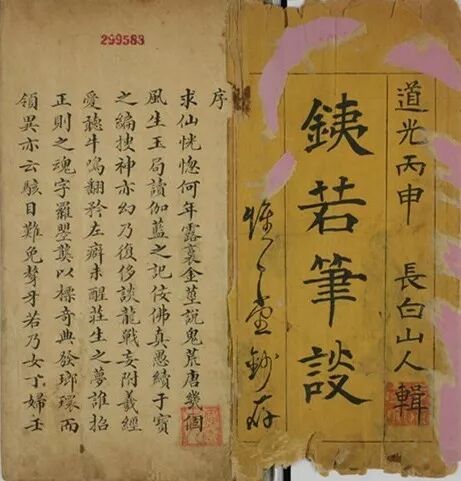 道光丙申 長白山人 輯
銕若筆談
堂鈔存
299583
序
求仙恍惚何年露裛金莖說鬼荒唐幾個
風生玉局讀伽藍之記佞佛真愚續于寶
之編搜神亦幻乃復侈談龍戰妄附羲經
愛聽牛鳴翻矜左癖未醒莊生之夢誰招
正則之魂字羅曌龑以標奇典發瑯環而
領異亦云駭目難免聱牙若乃女丁婦壬